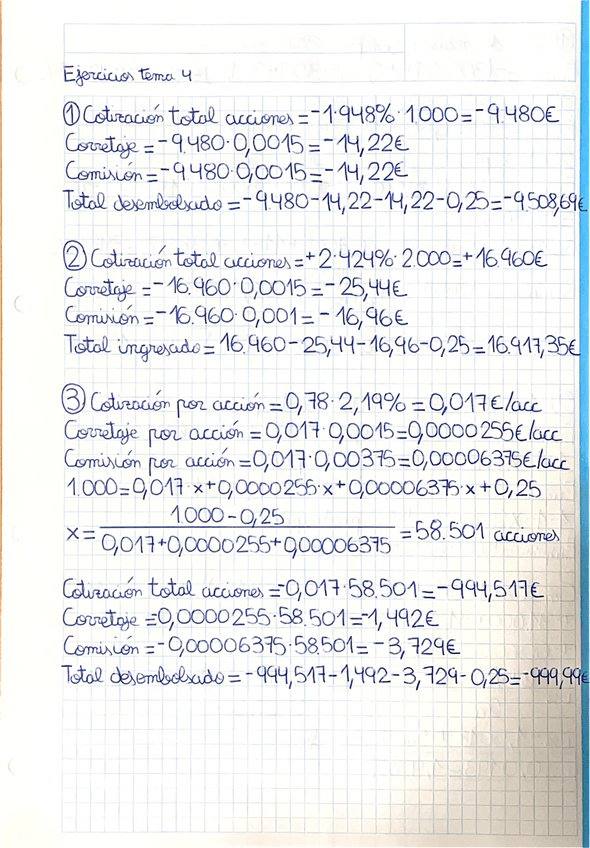 Ejercicios tema 4
① Cotización total acciones = -1·948%·1.000 = -9.480€
Corretaje = -9.480·0,0015 = -14,22€
Comisión = -9.480·0,0015 = -14,22€
Total desembolsado = -9.480-14,22-14,22-0,25 = -9.508,69€
② Cotización total acciones = +2·424%·2.000 = +16.960€
Corretaje = -16.960·0,0015 = -25,44€
Comisión = -16.960·0,001 = -16,96€
Total ingresado = 16.960-25,44-16,96-0,25 = 16.917,35€
③ Cotización por acción = 0,78·2,19% = 0,017€/acc
Corretaje por acción = 0,017·0,0015 = 0,0000255€/acc
Comisión por acción = 0,017·0,00375 = 0,00006375€/acc
1.000 = 0,017·x+0,0000255·x+0,00006375·x+0,25
1.000-0,25
x = ———— = 58.501 acciones
0,017+0,0000255+0,00006375
Cotización total acciones = -0,017·58.501 = -994,517€
Corretaje = -0,0000255·58.501 = -1,492€
Comisión = -0,00006375·58.501 = -3,729€
Total desembolsado = -994,517-1,492-3,729-0,25 = -999,99€